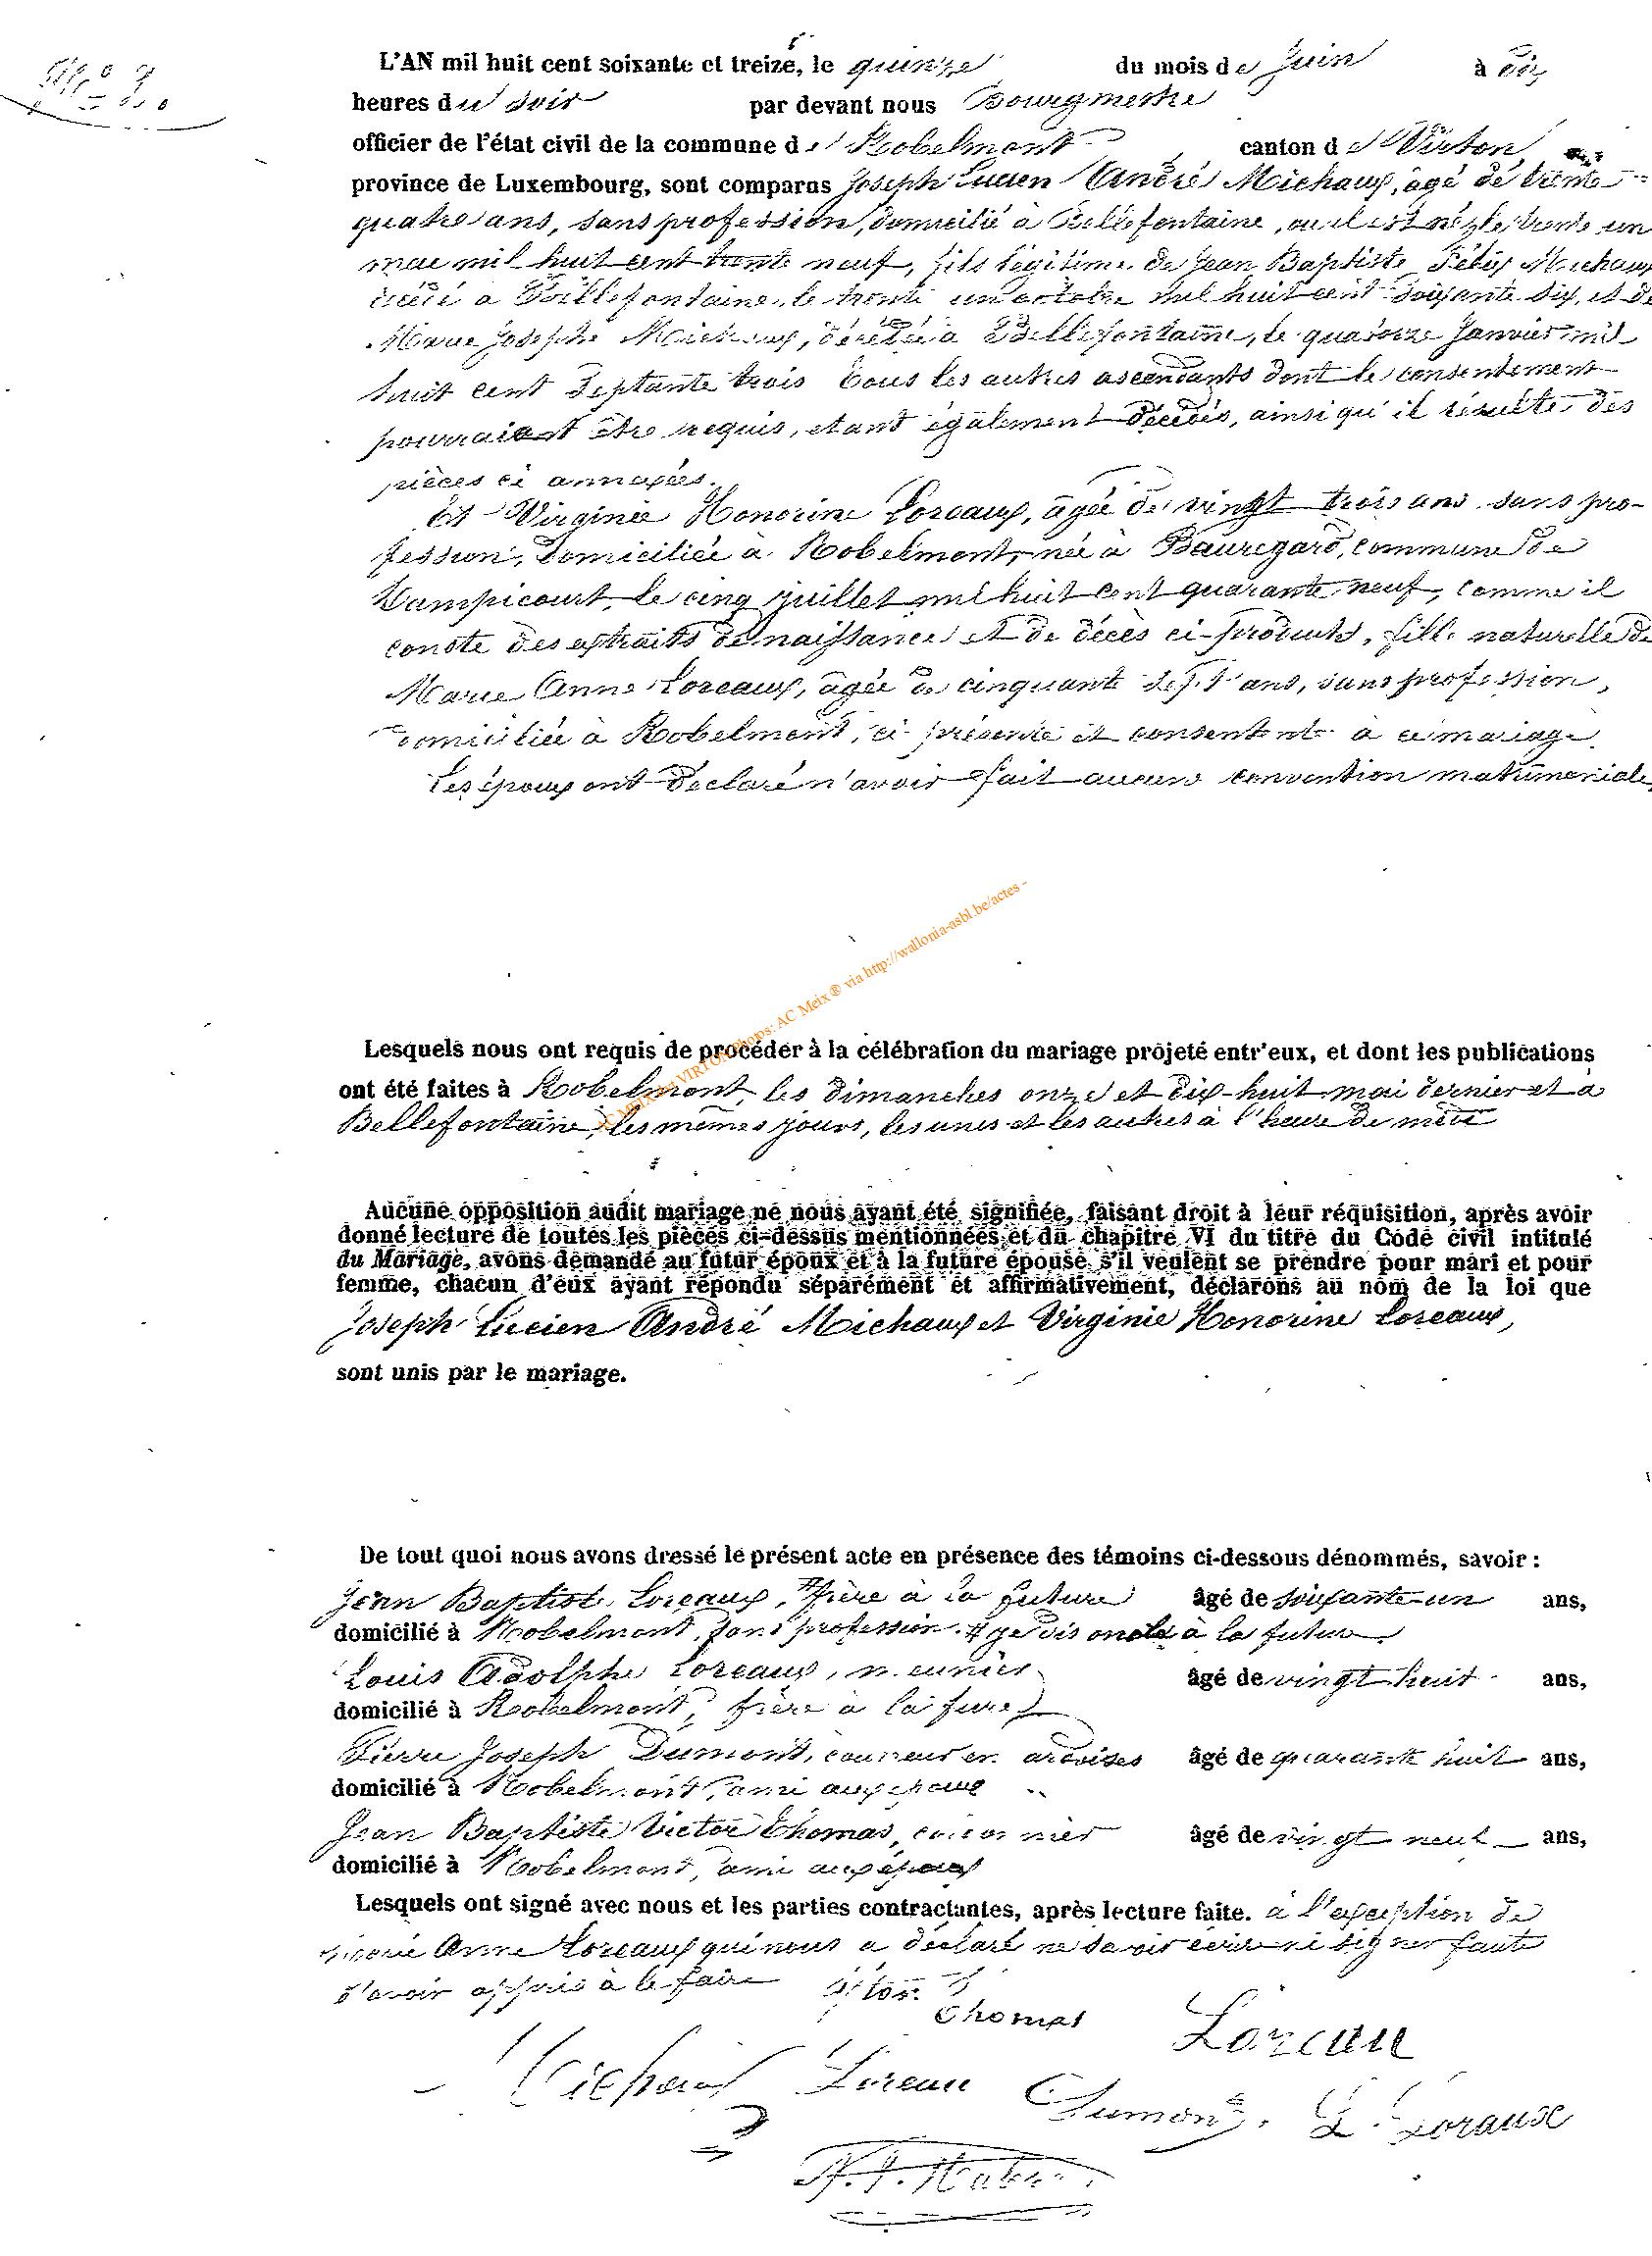 N° 3.
L'AN mil huit cent soixante et treize, le quinze du mois de Juin à dix
heures du soir par devant nous Bourgmestre
officier de l'état civil de la commune de Robelmont canton de Virton
province de Luxembourg, sont comparus Joseph Lucien André Michaux, âgé de trente
quatre ans, sans profession, domicilié à Bellefontaine, ou il est né, le trente un
mai mil huit cent trente neuf, fils légitime de Jean Baptiste Félix Michaux
décédé à Bellefontaine, le trente un octobre mil huit cent soixante six, et de
Marie Josephe Michaux, décédée à Bellefontaine, le quatorze Janvier mil
huit cent septante trois tous les autres ascendants dont le consentement
pourraient être requis, etant également décédés, ainsi qu'il résulte des
pièces ci annexées.
Et Virginie Honorine Loreaux, âgée de vingt trois ans sans pro-
fession, domiciliée à Robelmont, née à Bauregard, commune de
Dampicourt, le cinq juillet mil huit cent quarante neuf, comme il
conste des extraits de naissance et de décès ci-produits, fille naturelle de
Marie Anne Loreaux, âgée de cinquante sept ans, sans profession,
domiciliée à Robelmont, ci présente et consentante à ce mariage.
Les époux ont déclaré n'avoir fait aucune convention matrimoniale,
VIRTON Photos: AC Meix ® via http://wallonia-asbl.be/actes -
Lesquels nous ont requis de procéder à la célébration du mariage projeté entr'eux, et dont les publications
ont été faites à Robelmont, les dimanches onze et dix-huit mai dernier et a
Bellefontaine, les mêmes jours, les unes et les autres à l'heure de midi
Aucune opposition audit mariage ne nous ayant été signifiée, faisant droit à leur réquisition, après avoir
donné lecture de toutes les pièces ci-dessus mentionnées et du chapitre VI du titre du Code civil intitulé
du Mariage, avons demandé au futur époux et à la future épouse s'il veulent se prendre pour mari et pour
femme, chacun d'eux ayant répondu séparément et affirmativement, déclarons au nom de la loi que
Joseph Lucien André Michaux et Virginie Honorine Loreaux,
sont unis par le mariage.
De tout quoi nous avons dressé le présent acte en présence des témoins ci-dessous dénommés, savoir :
Jean Baptiste Loreaux, # frère à la future âgé de soixante-un ans,
domicilié à Robelmont, sans profession. # je dis oncle à la future
Louis Adolphe Loreaux, meunier âgé de vingt huit ans,
domicilié à Robelmont, frère à la
Pierre Joseph Dumont, couvreur en ardoises âgé de quarante huit ans,
domicilié à Robelmont, ami aux époux
Jean Baptiste Victor Thomas, cordonnier âgé de vingt neuf ans,
domicilié à Robelmont, ami aux époux
Lesquels ont signé avec nous et les parties contractantes, après lecture faite. à l'exception de
Marie Anne Loreaux qui nous a déclaré ne savoir écrire ni signer faute
d'avoir appris à le faire
Thomas
Loreau
Michaux Loreau
Dumont. L. Loraux